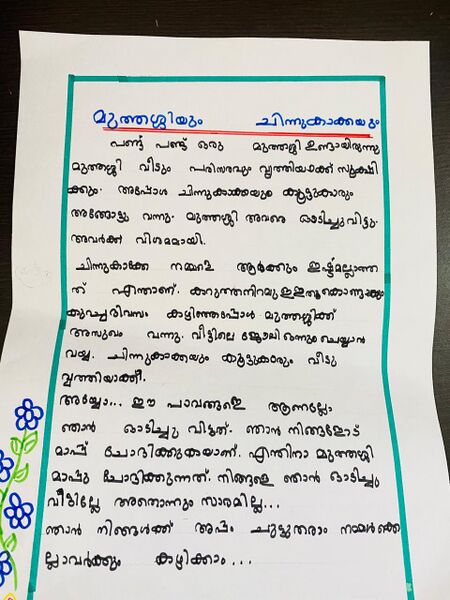 മുത്തശ്ശിയും ചിന്നുകാക്കയും
പണ്ട് പണ്ട് ഒരു മുത്തശ്ശി ഉണ്ടായിരുന്നു
മുത്തശ്ശി വീടും പരിസരവും വൃത്തിയാക്കി സൂക്ഷി
ക്കും. അപ്പോൾ ചിന്നുകാക്കയും കൂട്ടുകാരും
അങ്ങോട്ടു വന്നു. മുത്തശ്ശി അവരെ ഓടിച്ചുവിട്ടു.
അവർക്ക് വിശമമായി.
ചിന്നുകാക്കേ നമ്മളെ ആർക്കും ഇഷ്ട്ടമല്ലാത്ത
ത് എന്താണ്. കറുത്തനിറമു
കുറച്ചുദിവസം കഴിഞ്ഞപ്പോൾ മുത്തശ്ശിക്ക്
അസുഖം വന്നു. വീട്ടിലെ ജോലി ഒന്നും ചെയ്യാൻ
വയ്യ. ചിന്നുകാക്കയും കൂട്ടുകാരും വീടു
വൃത്തിയാക്കി.
അയ്യോ... ഈ പാവങ്ങളെ ആണല്ലോ
ഞാൻ ഓടിച്ചു വിട്ടത്. ഞാൻ നിങ്ങളോട്
മാപ്പ് ചോദിക്കുകയാണ്. എന്തിനാ മുത്തശ്ശി
മാപ്പു ചോദിക്കുന്നത്. നിങ്ങളെ ഞാൻ ഓടിച്ചു
വിട്ടില്ലേ അതൊന്നും സാരമില്ല...
ഞാൻ നിങ്ങൾക്ക് അപ്പം ചുട്ടുതരാം നമ്മൾക്കെ
ല്ലാവർക്കും കഴിക്കാം...